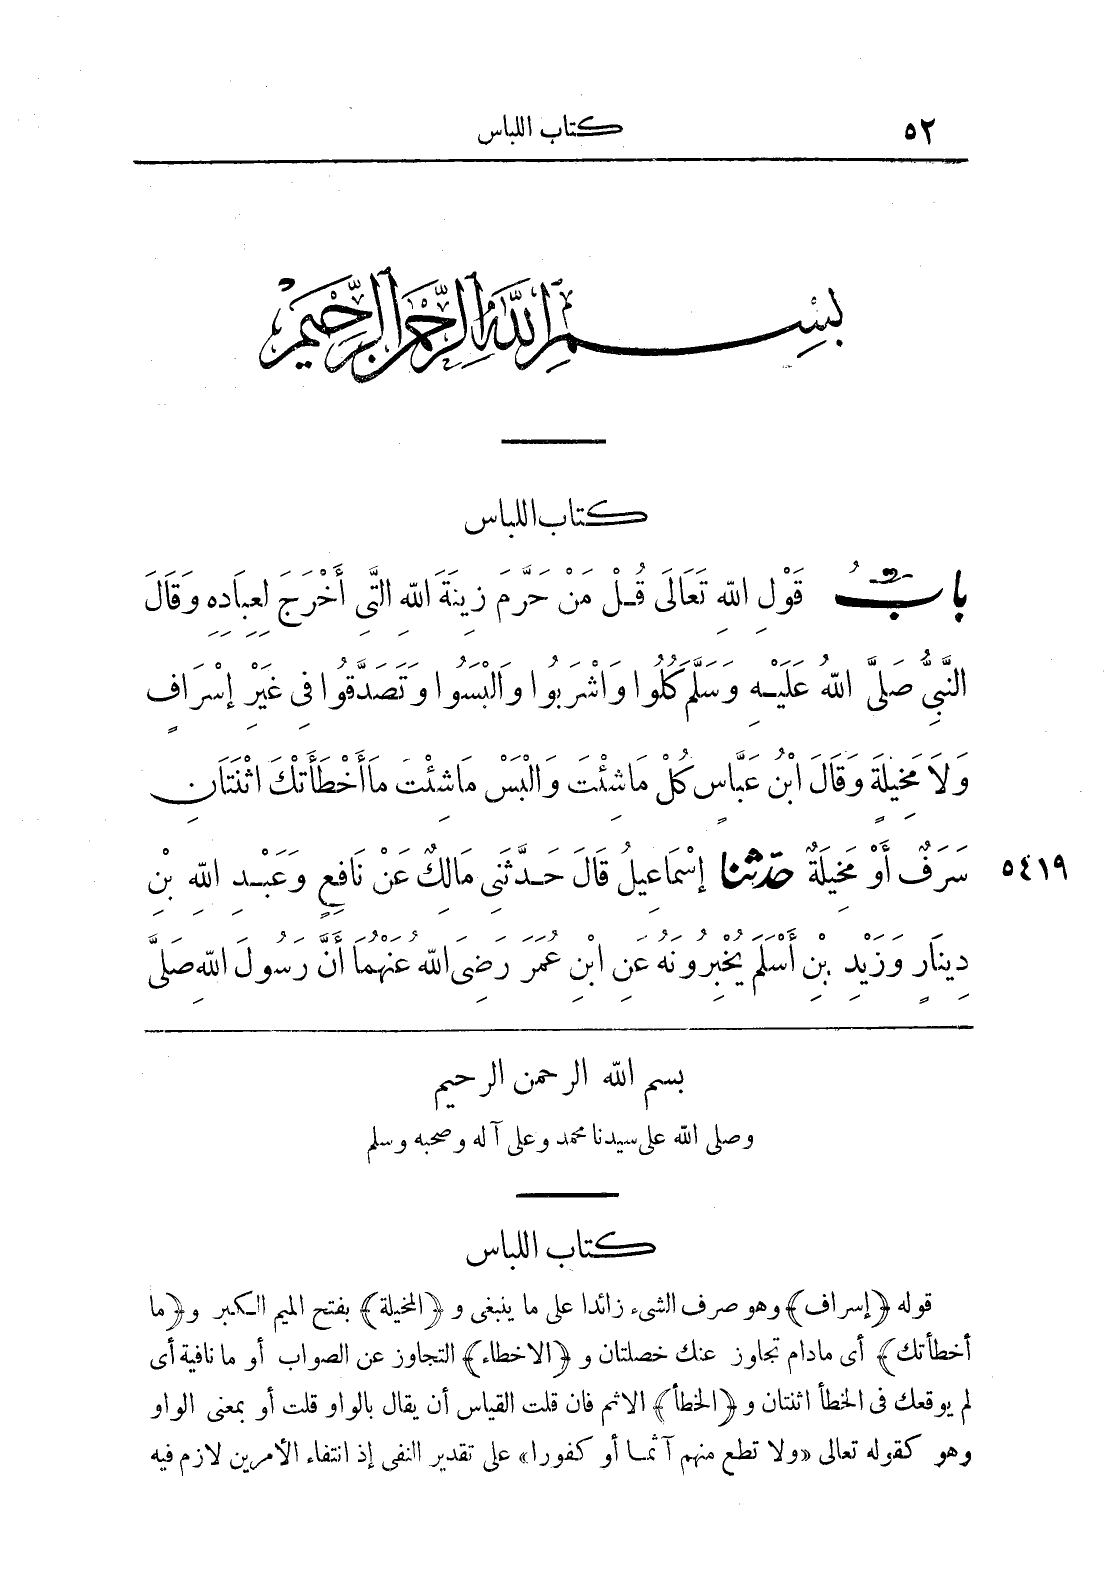 ٥٢ كتاب اللباس
بِسْمِ اللَّهِ الرَّحْمَنِ الرَّحِيمِ
كتاب اللباس
بابُ قَوْلِ اللَّهِ تَعَالَى قُلْ مَنْ حَرَّمَ زِينَةَ اللَّهِ الَّتِي أَخْرَجَ لِعِبَادِهِ وَقَالَ
النَّبِيُّ صَلَّى اللَّهُ عَلَيْهِ وَسَلَّمَ كُلُوا وَاشْرَبُوا وَالْبَسُوا وَتَصَدَّقُوا فِي غَيْرِ إِسْرَافٍ
وَلَا مَخِيلَةٍ وَقَالَ ابْنُ عَبَّاسٍ كُلْ مَا شِئْتَ وَالْبَسْ مَا شِئْتَ مَا أَخْطَأَتْكَ اثْنَتَانِ
سَرَفٌ أَوْ مَخِيلَةٌ حدثنا إِسْمَاعِيلُ قَالَ حَدَّثَنِي مَالِكٌ عَنْ نَافِعٍ وَعَبْدِ اللَّهِ بْنِ ٥٤١٩
دِينَارٍ وَزَيْدِ بْنِ أَسْلَمَ يُخْبِرُونَهُ عَنِ ابْنِ عُمَرَ رَضِيَ اللَّهُ عَنْهُمَا أَنَّ رَسُولَ اللَّهِ صَلَّى
بسم الله الرحمن الرحيم
وصلى الله على سيدنا محمد وعلى آله وصحبه وسلم
كتاب اللباس
قوله ﴿إسراف﴾ وهو صرف الشيء زائدا على ما ينبغى و ﴿المخيلة﴾ بفتح الميم الكبر و ﴿ما
أخطأتك﴾ أى مادام تجاوز عنك خصلتان و ﴿الاخطاء﴾ التجاوز عن الصواب أو ما نافية أى
لم يوقعك فى الخطأ اثنتان و ﴿الخطأ﴾ الاثم فان قلت القياس أن يقال بالواو قلت أو بمعنى الواو
وهو كقوله تعالى «ولا تطع منهم آثما أو كفورا» على تقدير النفى إذ انتفاء الأمرين لازم فيه